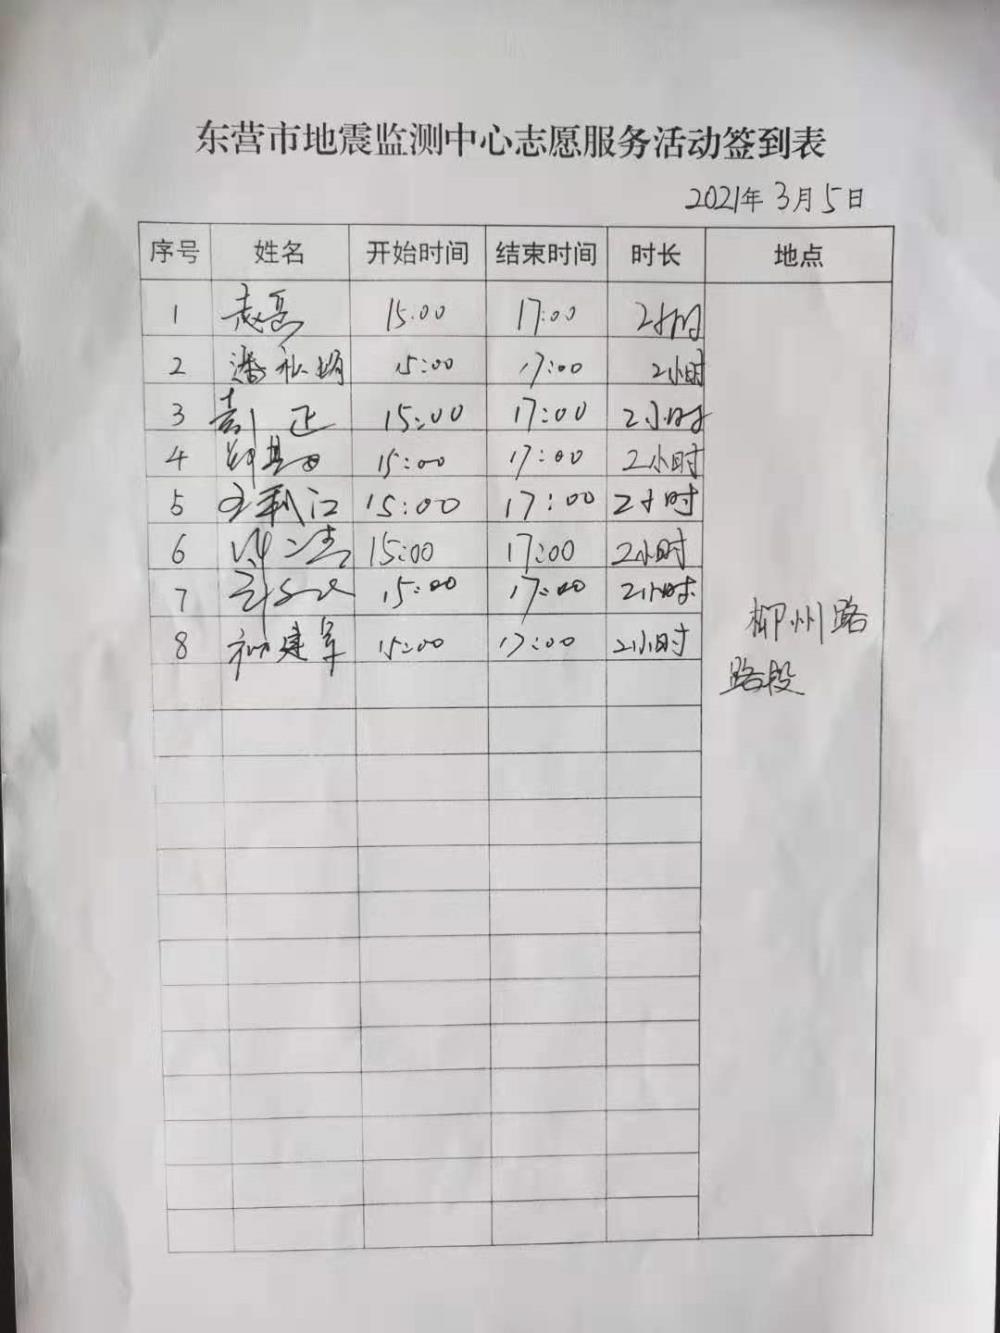 东营市地震监测中心志愿服务活动签到表
2021年3月5日
序号 姓名 开始时间 结束时间 时长 地点
1 15:00 17:00 2小时
2 15:00 17:00 2小时
3 15:00 17:00 2小时
4 15:00 17:00 2小时
5 15:00 17:00 2小时
6 15:00 17:00 2小时
7 15:00 17:00 2小时
8 建军 15:00 17:00 2小时
柳州路
路段